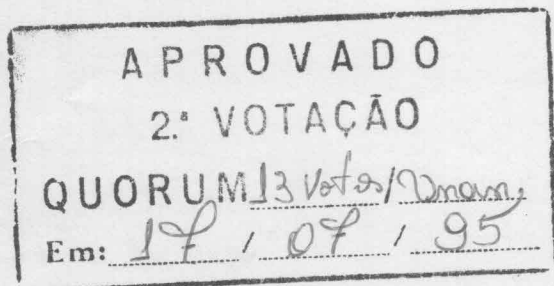 APROVADO
2.ª VOTAÇÃO
QUORUM 13 Votos/Unan.
Em: 17 / 07 / 95